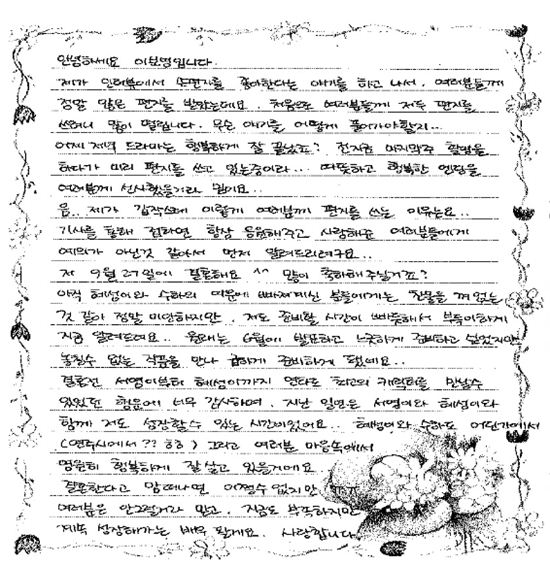 안녕하세요 이보영입니다.
제가 인터뷰에서 손편지를 좋아한다는 얘기를 하고 나서, 여러분들께
정말 많은 편지를 받았는데요. 처음으로 여러분들께 저두 편지를
쓰려니 많이 떨립니다. 무슨 얘기를 어떻게 풀어가야할지...
어제 저의 드라마는 행복하게 잘 끝났죠? 전 지금 마지막주 촬영을
하다가 미리 편지를 쓰고 있는중이라... 따뜻하고 행복한 엔딩을
여러분께 선사했을거라 믿어요..
음.. 제가 갑작스레 이렇게 여러분께 편지를 쓰는 이유는요..
기사를 통해 접하면 항상 응원해주고 사랑해준 여러분들에게
예의가 아닌것 같아서 먼저 알려드리려구요..
저 9월 27일에 결혼해요 ^^ 많이 축하해주실거죠?
아직 혜성이와 수하의 여운에 빠져계신 분들에게는 찬물을 껴얹는
것 같아 정말 미안하지만, 저도 준비할 시간이 빠듯해서 부득이하게
지금 알려드려요.. 원래는 6월에 발표하고 느긋하게 준비하고 싶었지만
놓칠수 없는 작품을 만나 급하게 준비하게 됐네요..
결론건 서영이부터 혜성이까지 연타로 최고의 캐릭터를 만날수
있었던 행운에 너무 감사하며, 지난 일년은 서영이와 혜성이와
함께 저도 성장할수 있는 시간이었어요.. 혜성이와 수하도 어딘가에서
(연주시에서?? ㅎㅎ) 그리고 여러분 마음속에서
영원히 행복하게 잘 살고 있을거에요
결혼한다고 맘 떠나면 어쩔수 없지만
여러분은 안그럴거라 믿고, 지금도 부족하지만
계속 성장해가는 배우 될게요. 사랑합니다.